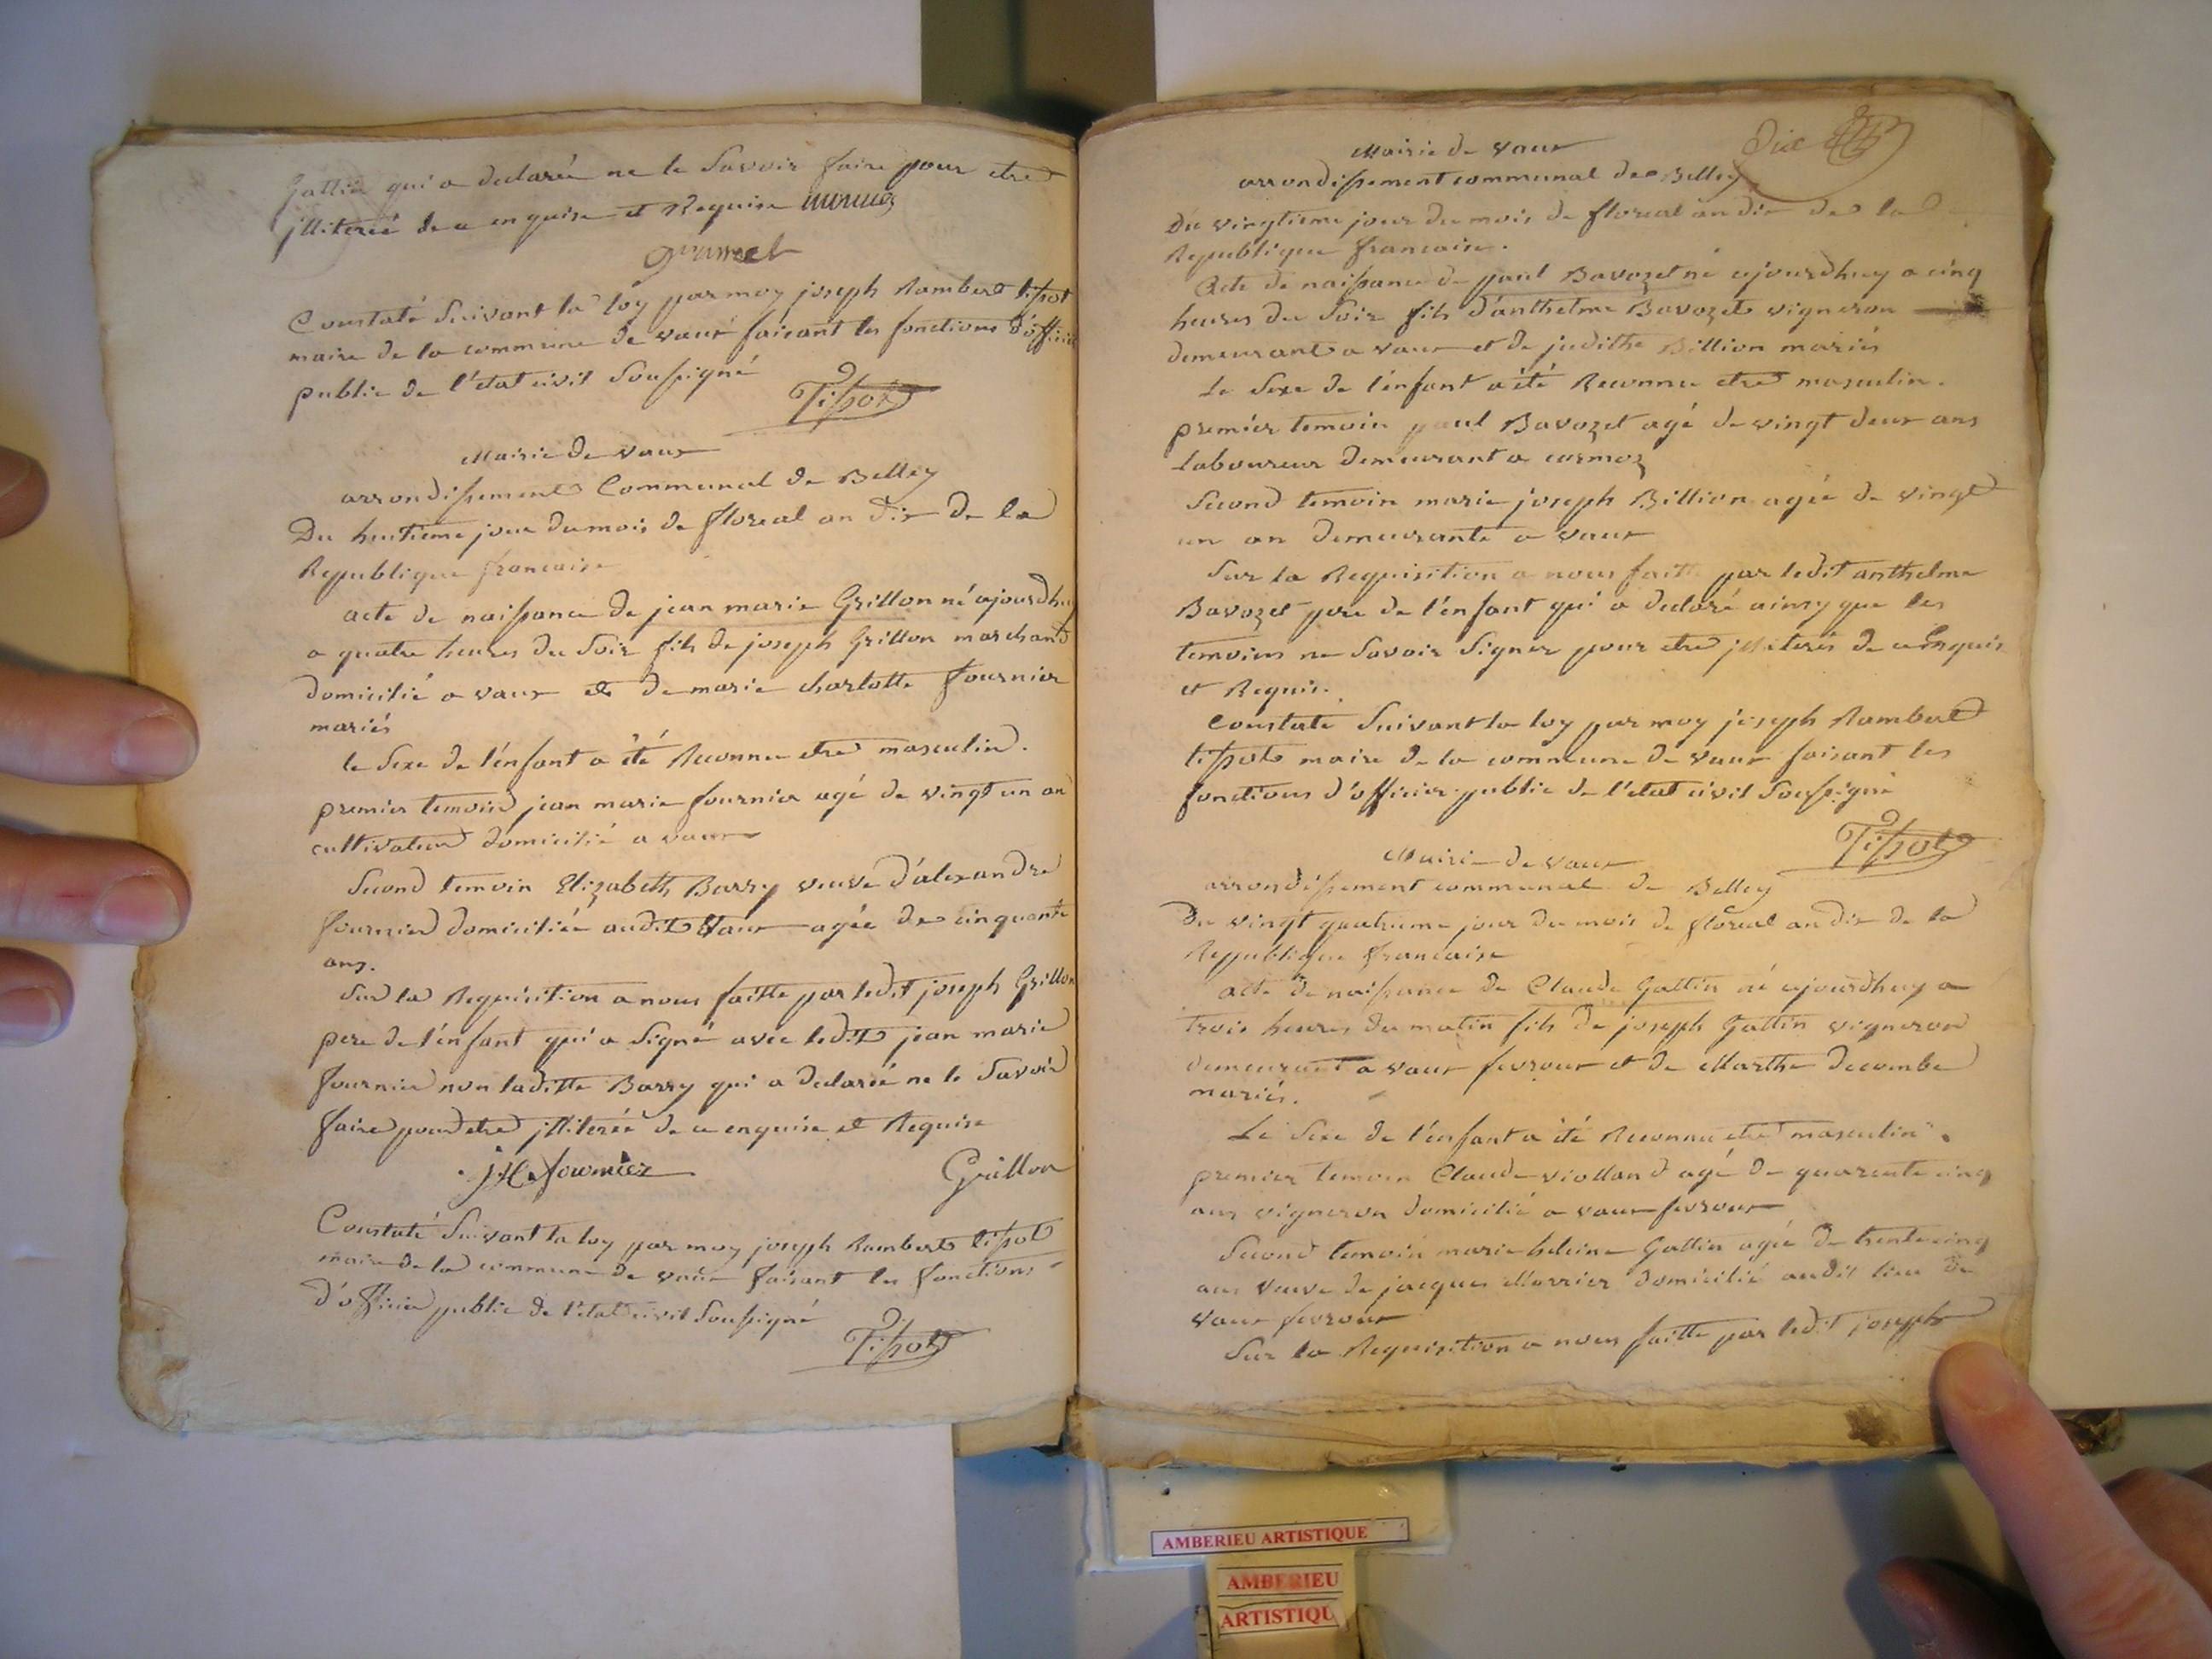 Gattin qui a declareé ne le Savoir faire pour etre
jlliterée de ce enquise et Requise
Constaté Suivant la loy par moy joseph Rambert tissot
maire de la commune de vaux faisant les fonctions d'officier
public de l'etat civil Soussigné
Tissot
Mairie de vaux
arrondissement Communal de Belley
Du huitieme jour du mois de floreal an dix de la
Republique francaise
acte de naissance de jean marie Grillon né ajourdhuy
a quatre heures du Soir fils de joseph Grillon marchand
domicilié a vaux et de marie charlotte fournier
mariés
le Sexe de l'enfant a été Reconnu etre masculin.
premier temoin jean marie fournier agé de vingt un an
cultivateur domicilié a vaux
Second temoin Elizabeth Barry veuve d'alexandre
fournier domiciliée audit Vaux agée de cinquante
ans.
Sur la Requisition a nous faitte par ledit joseph Grillon
pere de l'enfant qui a Signé avec ledit jean marie
fournier non laditte Barry qui a declareé ne le Savoir
faire pour etre jlliterée de ce enquise et Requise
jM fournier Grillon
Constaté Suivant la loy par moy joseph Rambert tissot
maire de la commune de vaux faisant les fonctions
d'officier public de l'etat civil Soussigné
Tissot
Dix
Mairie de vaux
arrondissement communal de Belley
Du vingtieme jour du mois de floreal an dix de la
Republique francaise.
Acte de naissance de paul Bavozet né ajourdhuy a cinq
heures du Soir fils d'anthelme Bavozet vigneron
demeurant a vaux et de judithe Billion mariés
Le Sexe de l'enfant a été Reconnu etre masculin.
premier temoin paul Bavozet agé de vingt deux ans
Laboureur demeurant a cormoz
Second temoin marie joseph Billion agée de vingt
un an demeurante a vaux
Sur la Requisition a nous faitte par ledit anthelme
Bavozet pere de l'enfant qui a declaré ainsy que les
temoins ne Savoir Signer pour etre jlliterés de ce enquis
et Requis.
Constaté Suivant la loy par moy joseph Rambert
tissot maire de la commune de vaux faisant les
fonctions d'officier public de l'etat civil Soussigné
Tissot
Mairie de vaux
arrondissement communal de Belley
Du vingt quatrieme jour du mois de floreal an dix de la
Republique francaise
acte de naissance de Claude Gattin né ajourdhuy a
trois heures du matin fils de joseph Gattin vigneron
demeurant a vaux fevroux et de Marthe decombe
mariés.
Le Sexe de l'enfant a été Reconnu etre masculin.
premier temoin Claude violland agé de quarente cinq
ans vigneron domicilié a vaux fevroux
Second temoin marie heleine Gattin agée de trente cinq
ans veuve de jacques Morrier domicilié audit lieu de
vaux fevroux
Sur la Requisition a nous faitte par ledit joseph
AMBERIEU ARTISTIQUE
AMBERIEU
ARTISTIQU